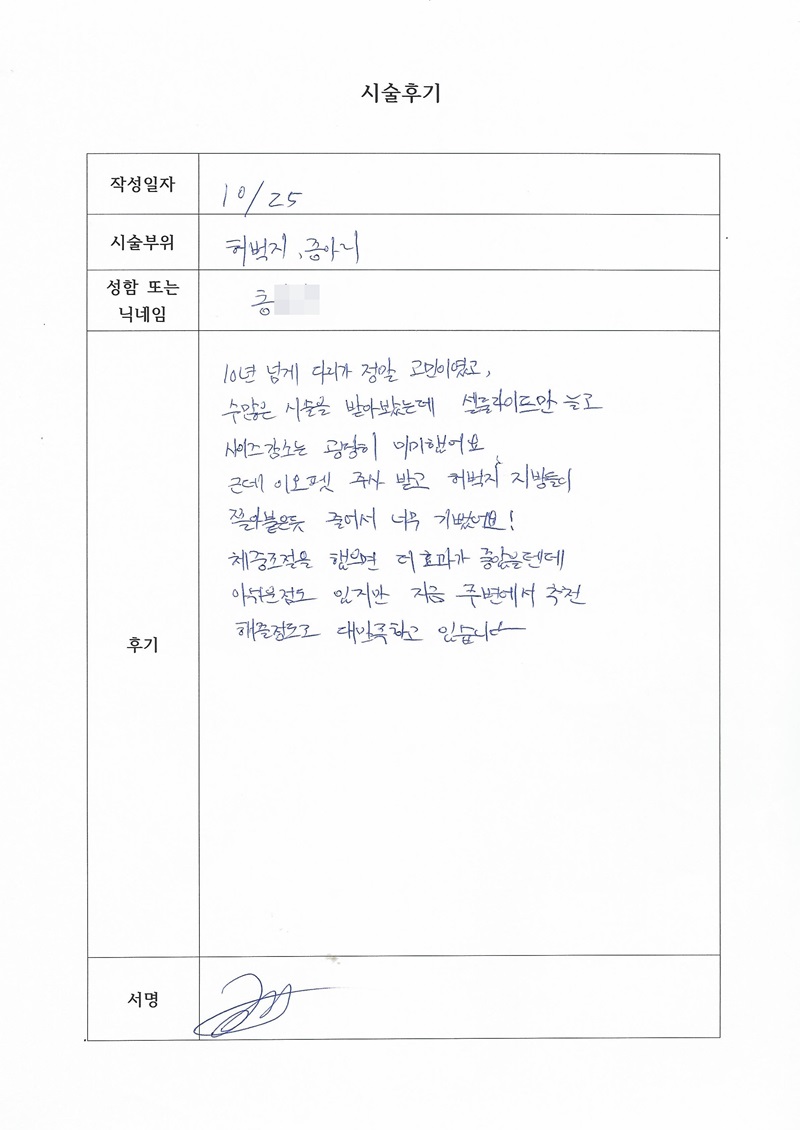 시술후기
작성일자
10/25
시술부위
허벅지, 종아리
성함 또는
닉네임
홍
후기
10년 넘게 다리가 정말 고민이였고,
수많은 시술을 받아봤는데 셀룰라이드만 늘고
사이즈감소는 굉장히 미미했어요
근데 이오펫 주사 받고 허벅지 지방들이
쫄아붙은듯 줄어서 너무 기뻤어요!
체중조절을 했으면 더 효과가 좋았을텐데
아쉬운점도 있지만 지금 주변에서 추천
해줄정도로 대만족하고 있습니다
서명